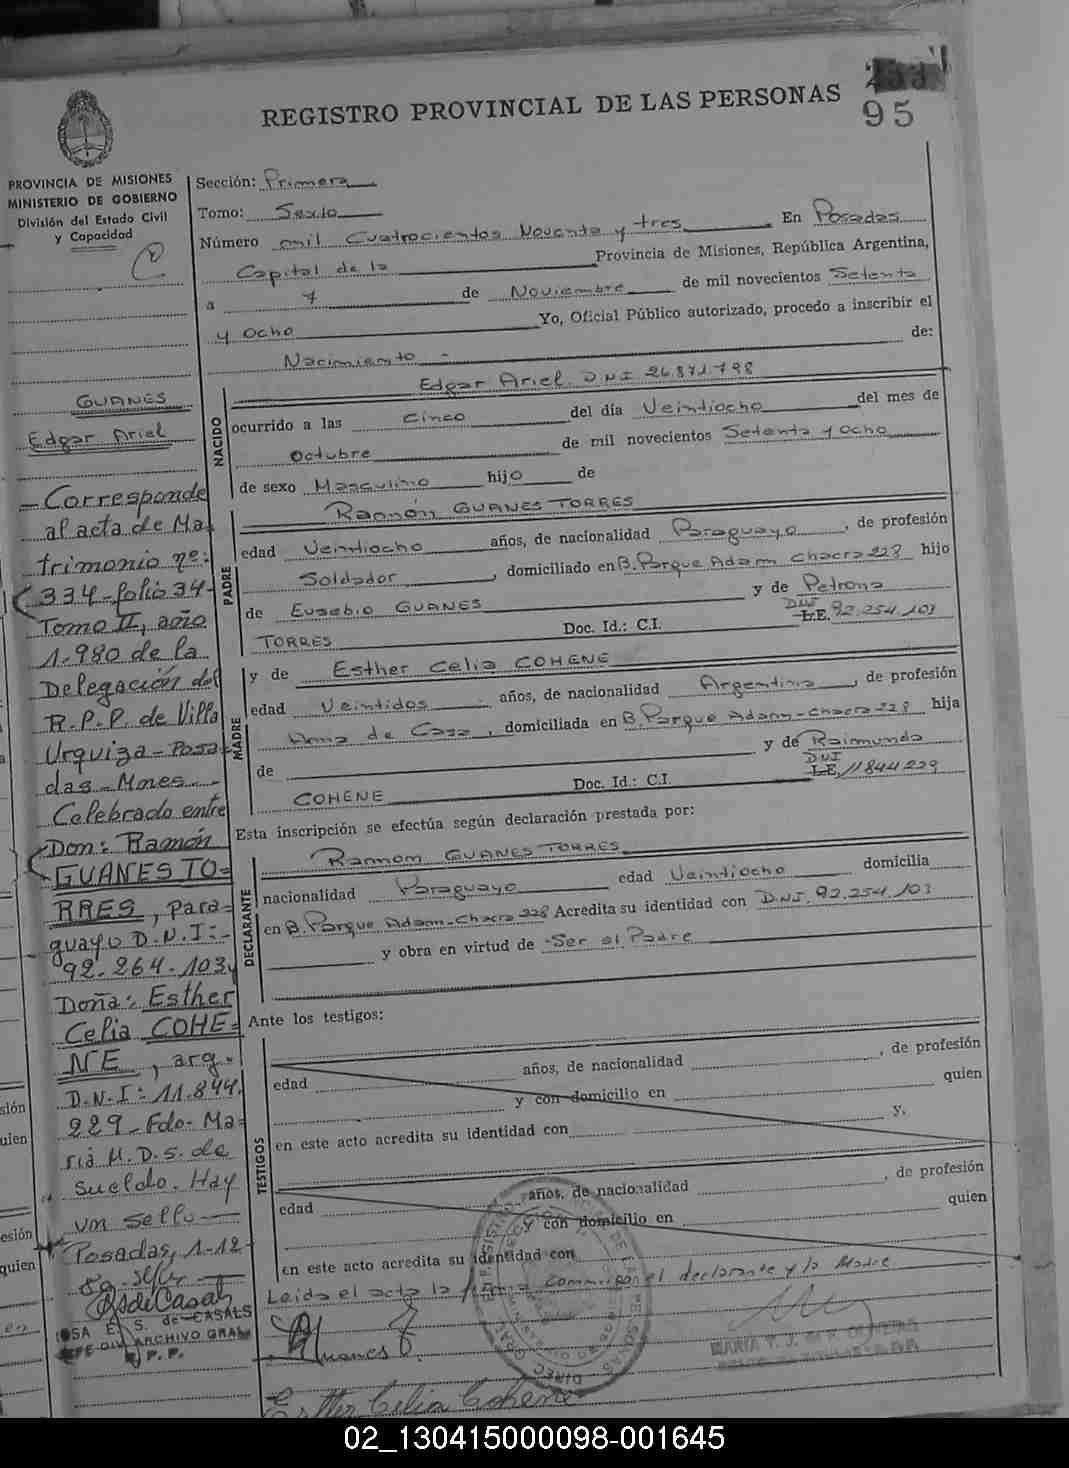 REGISTRO PROVINCIAL DE LAS PERSONAS
95
PROVINCIA DE MISIONES
MINISTERIO DE GOBIERNO
División del Estado Civil
y Capacidad
GUANES
Edgar Ariel
- Corresponde
al acta de Ma-
trimonio nº:
334-folio 34-
Tomo II, año
1.980 de la
Delegación del
R.P.P. de Villa
Urquiza-Posa-
das-Mnes.-
Celebrado entre
Don: Ramón
GUANES TO=
RRES, para=
guayo D.N.I:-
92-264-103 y
Doña: Esther
Celia COHE=
NE, arg.-
D.N.I: 11.844.
229-Fdo-Ma=
ria M.D.S. de
Sueldo. Hay
un sello-
Posadas, 1-12-
ROSA E. S. de CASALS
JEFE DIV. ARCHIVO GRAL
R.P.P.
Sección: Primera
Tomo: Sexto
Número mil Cuatrocientos Noventa y tres En Posadas
Capital de la Provincia de Misiones, República Argentina,
a 7 de Noviembre de mil novecientos Setenta
y Ocho Yo, Oficial Público autorizado, procedo a inscribir el
Nacimiento - de:
NACIDO
Edgar Ariel. DNI 26.871.798
ocurrido a las Cinco del día Veintiocho del mes de
Octubre de mil novecientos Setenta y ocho
de sexo Masculino hijo de
PADRE
Ramón GUANES TORRES
edad Veintiocho años, de nacionalidad Paraguayo, de profesión
Soldador, domiciliado en B. Parque Adam Chacra 228 hijo
de Eusebio GUANES y de Petrona
TORRES Doc. Id.: C.I. L.E. DNI 92.254.103
MADRE
y de Esther Celia COHENE
edad Veintidos - años, de nacionalidad Argentina, de profesión
Ama de Casa, domiciliada en B. Parque Adam-Chacra 228 hija
de y de Raimunda
COHENE Doc. Id.: C.I. L.E. DNI 11844229
Esta inscripción se efectúa según declaración prestada por:
DECLARANTE
Ramón GUANES TORRES
nacionalidad Paraguayo edad Veintiocho domicilia
en B. Parque Adam-Chacra 228 Acredita su identidad con D.N.I. 92.254.103
y obra en virtud de -Ser el Padre
Ante los testigos:
TESTIGOS
edad años, de nacionalidad , de profesión
y con domicilio en quien
en este acto acredita su identidad con y,
edad años, de nacionalidad , de profesión
y con domicilio en quien
en este acto acredita su identidad con
Leida el acta la firma conmigo el declarante y la Madre
Guanes
Esther Celia Cohene
02_130415000098-001645